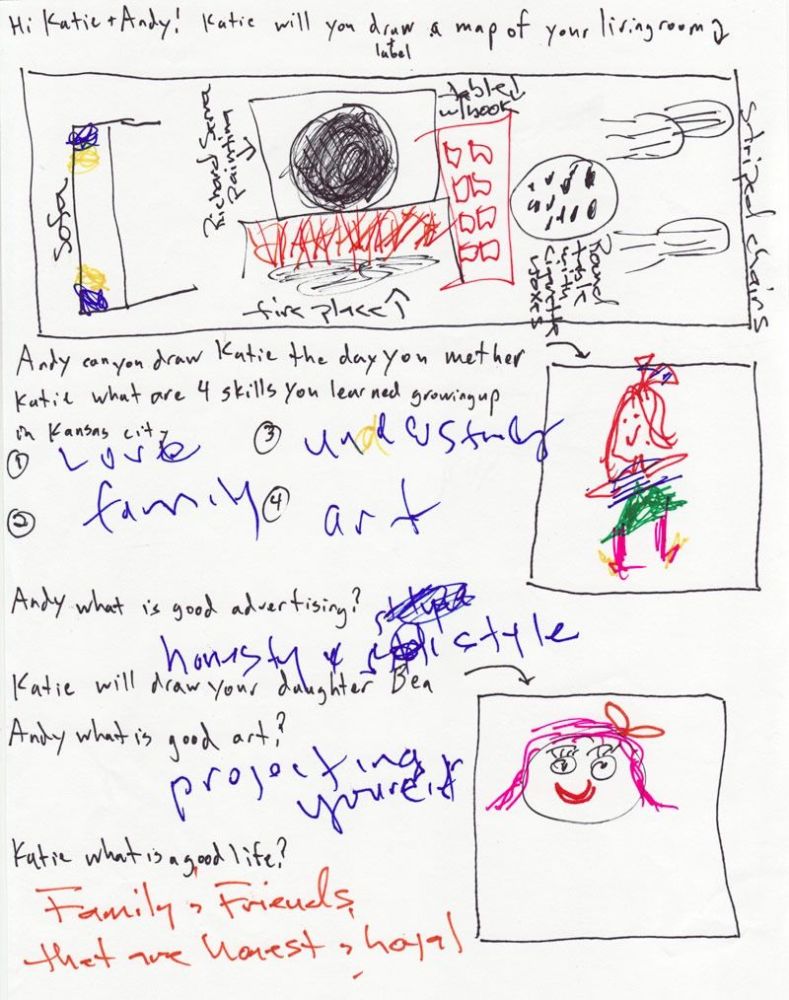 Hi Katie + Andy! Katie will you draw a map of your livingroom
label
Sofa
Richard Serra
Painting
table
w/book
Round
table
with
cigarette
boxes
striped chairs
fire place
Andy can you draw Katie the day you met her
Katie what are 4 skills you learned growing up
in Kansas city
① Love
② family
③ undustudy
④ art
Andy what is good advertising?
honesty & style
Katie will draw your daughter Bea
Andy what is good art?
projecting
yourself
Katie what is a good life?
Family, Friends,
that are honest, loyal